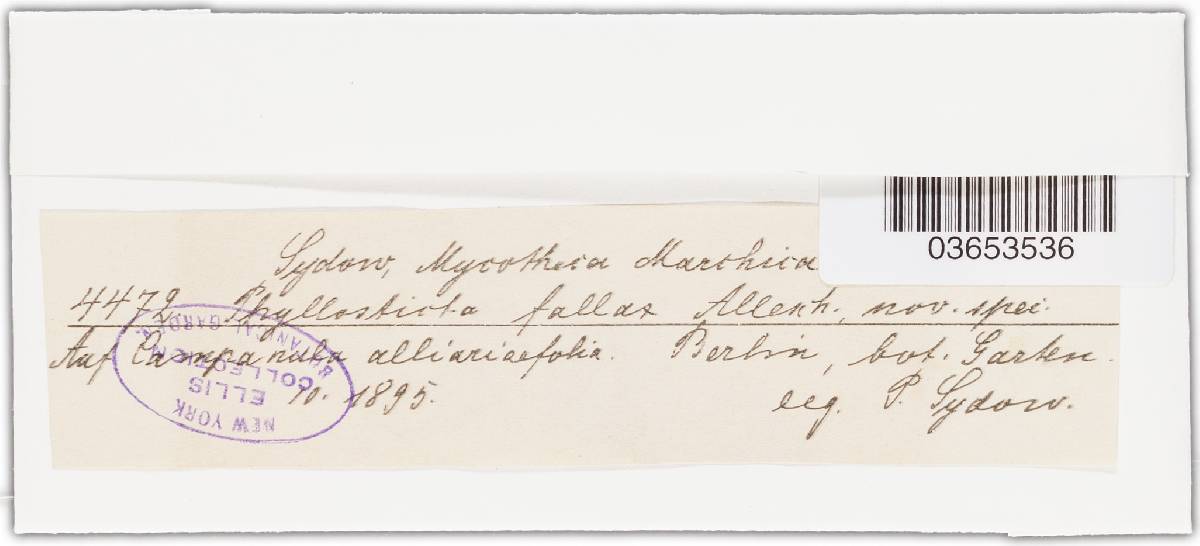 03653536
Sydow, Mycotheca Marchica
4472. Phyllosticta fallax Allesch., nov. spec.
Auf Campanula alliariaefolia. Berlin, bot. Garten.
10. 1895.
leg. P. Sydow.
NEW YORK
ELLIS
COLLECTION
BOTANICAL GARDEN